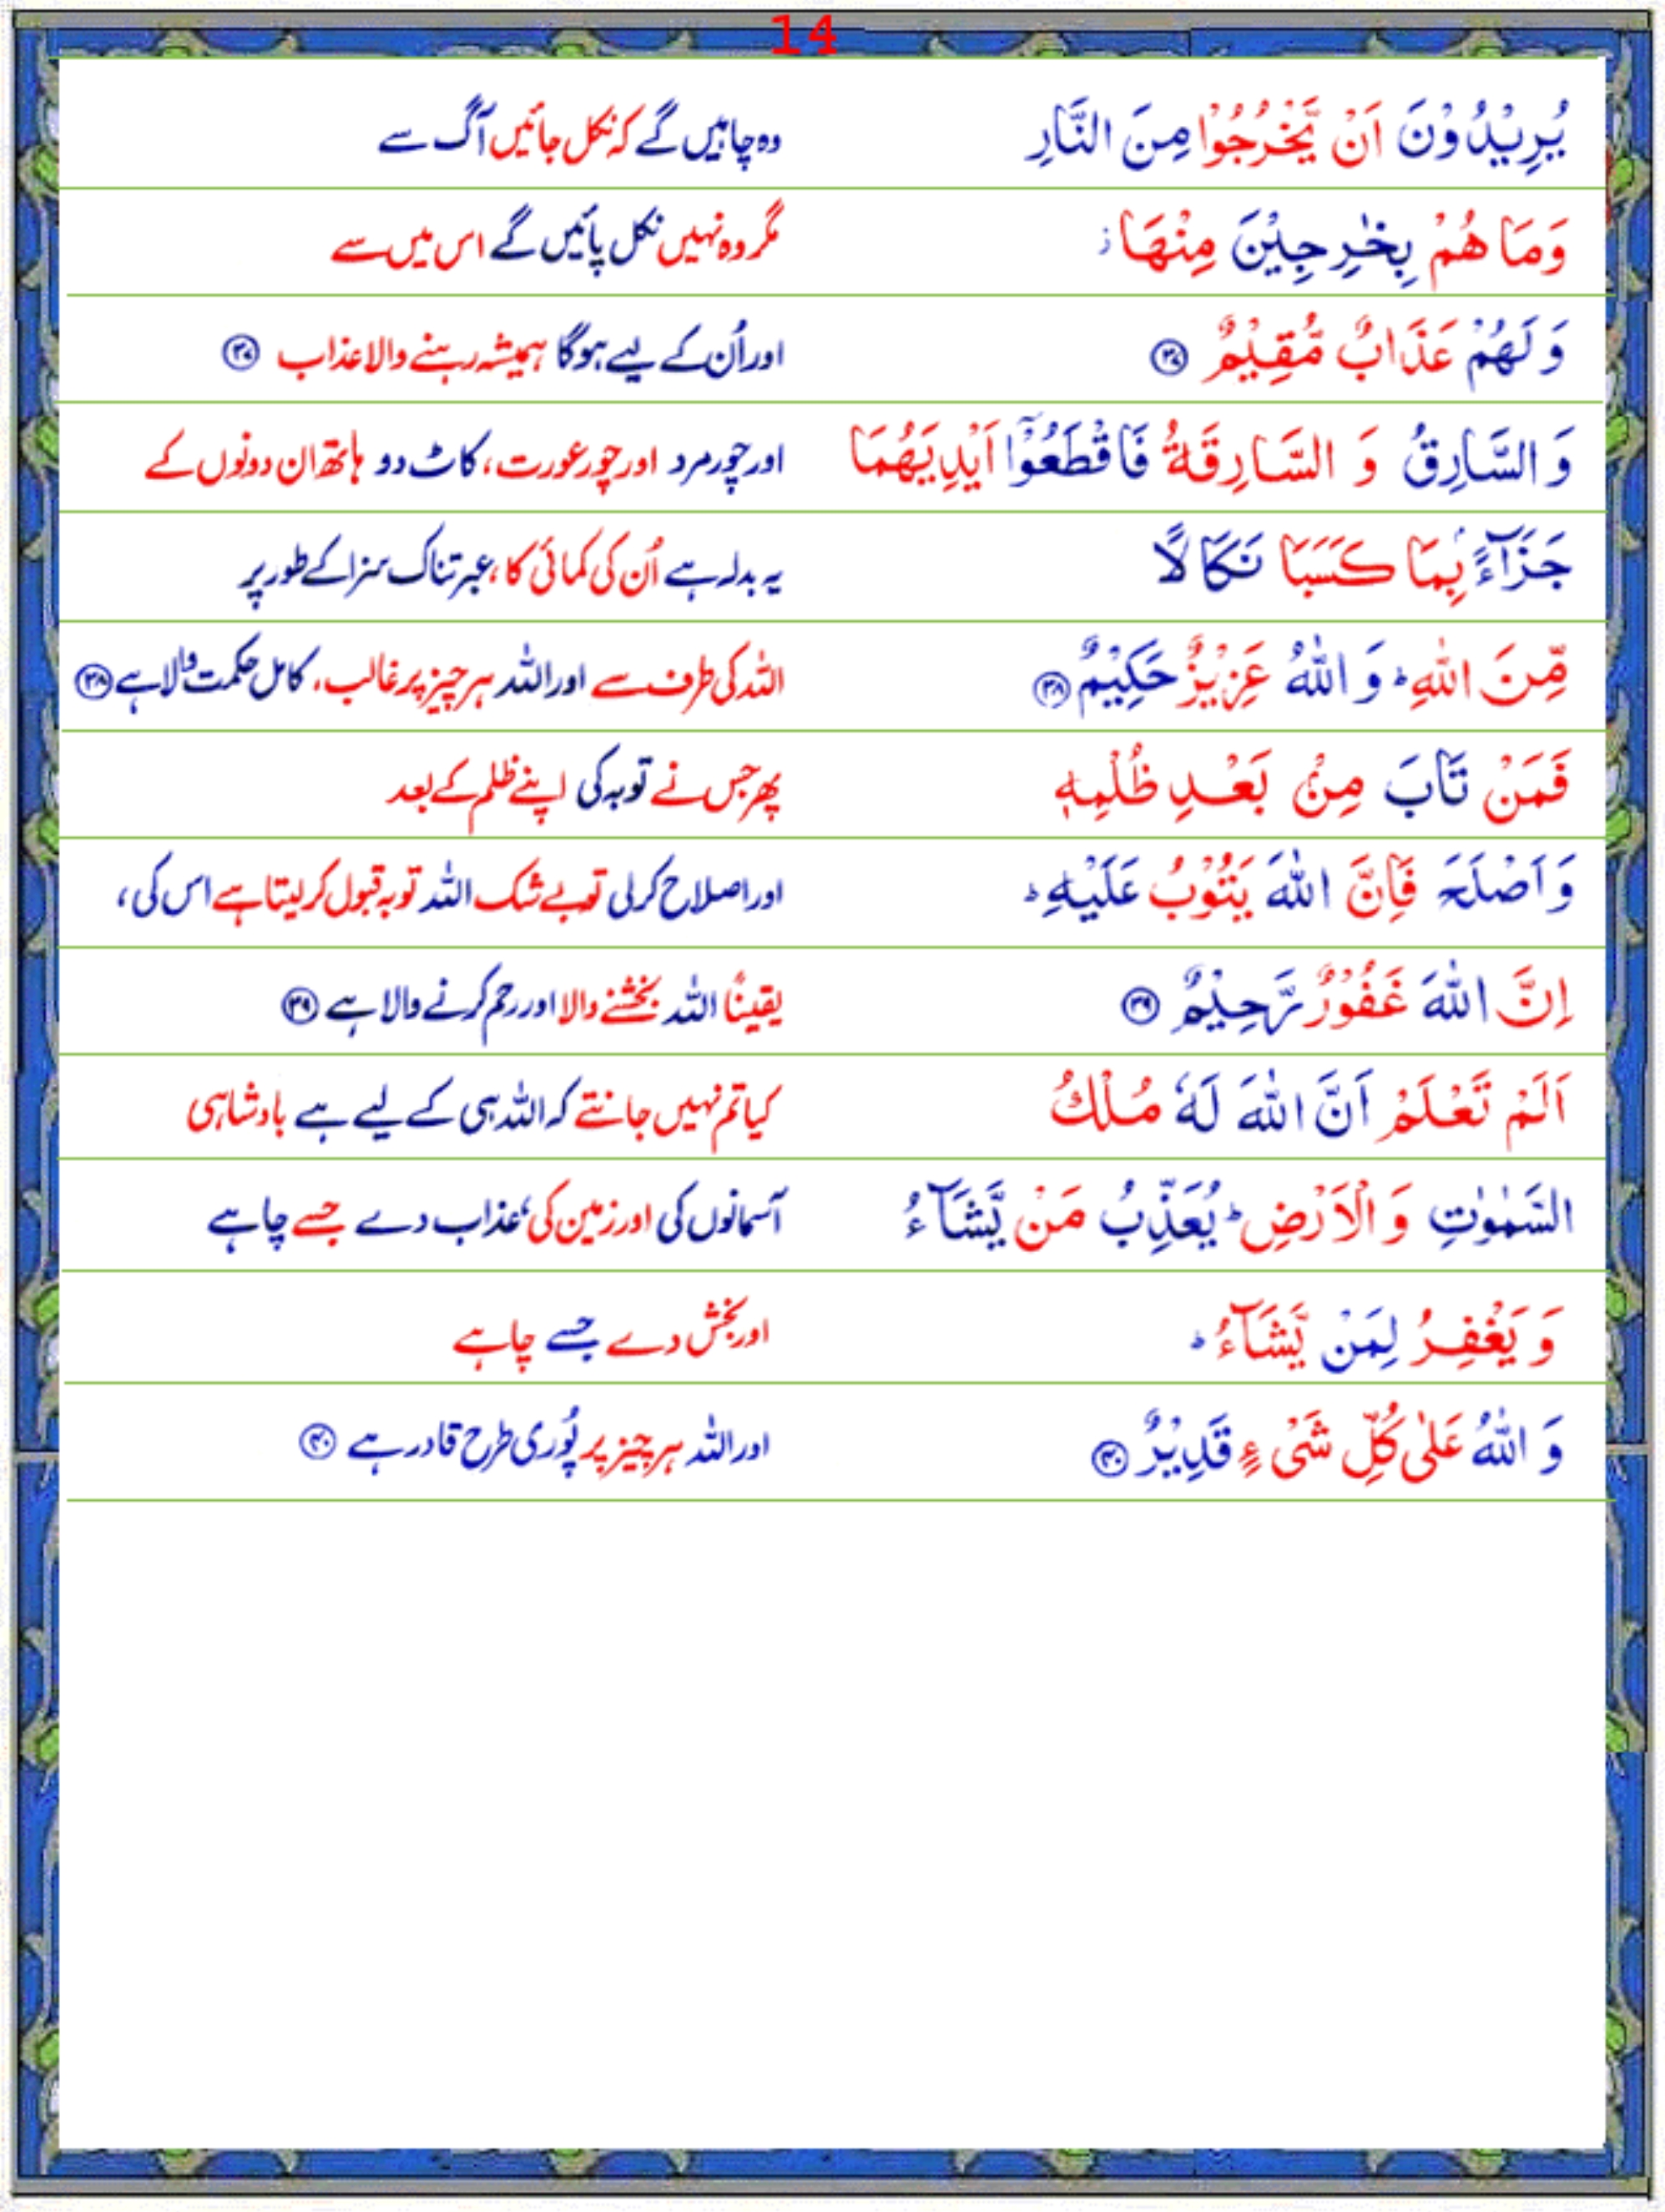 14
يُرِيْدُوْنَ اَنْ يَّخْرُجُوْا مِنَ النَّارِ وہ چاہیں گے کہ نکل جائیں آگ سے
وَمَا هُمْ بِخٰرِجِيْنَ مِنْهَا ؗ مگر وہ نہیں نکل پائیں گے اس میں سے
وَلَهُمْ عَذَابٌ مُّقِيْمٌ ۝۳۷ اور اُن کے لیے ہوگا ہمیشہ رہنے والا عذاب ۝۳۷
وَ السَّارِقُ وَ السَّارِقَةُ فَاقْطَعُوْۤا اَيْدِيَهُمَا اور چور مرد اور چور عورت، کاٹ دو ہاتھ ان دونوں کے
جَزَآءًۢ بِمَا كَسَبَا نَكَالًا یہ بدلہ ہے اُن کی کمائی کا، عبرتناک سزا کے طور پر
مِّنَ اللّٰهِ ؕ وَ اللّٰهُ عَزِيْزٌ حَكِيْمٌ ۝۳۸ اللہ کی طرف سے اور اللہ ہر چیز پر غالب، کامل حکمت والا ہے ۝۳۸
فَمَنْ تَابَ مِنْۢ بَعْدِ ظُلْمِهٖ پھر جس نے توبہ کی اپنے ظلم کے بعد
وَ اَصْلَحَ فَاِنَّ اللّٰهَ يَتُوْبُ عَلَيْهِ ؕ اور اصلاح کرلی تو بے شک اللہ توبہ قبول کرلیتا ہے اس کی،
اِنَّ اللّٰهَ غَفُوْرٌ رَّحِيْمٌ ۝۳۹ یقیناً اللہ بخشنے والا اور رحم کرنے والا ہے ۝۳۹
اَلَمْ تَعْلَمْ اَنَّ اللّٰهَ لَهٗ مُلْكُ کیا تم نہیں جانتے کہ اللہ ہی کے لیے ہے بادشاہی
السَّمٰوٰتِ وَ الْاَرْضِ ؕ يُعَذِّبُ مَنْ يَّشَآءُ آسمانوں کی اور زمین کی، عذاب دے جسے چاہے
وَ يَغْفِرُ لِمَنْ يَّشَآءُ ؕ اور بخش دے جسے چاہے
وَ اللّٰهُ عَلٰى كُلِّ شَیْءٍ قَدِيْرٌ ۝۴۰ اور اللہ ہر چیز پر پُوری طرح قادر ہے ۝۴۰